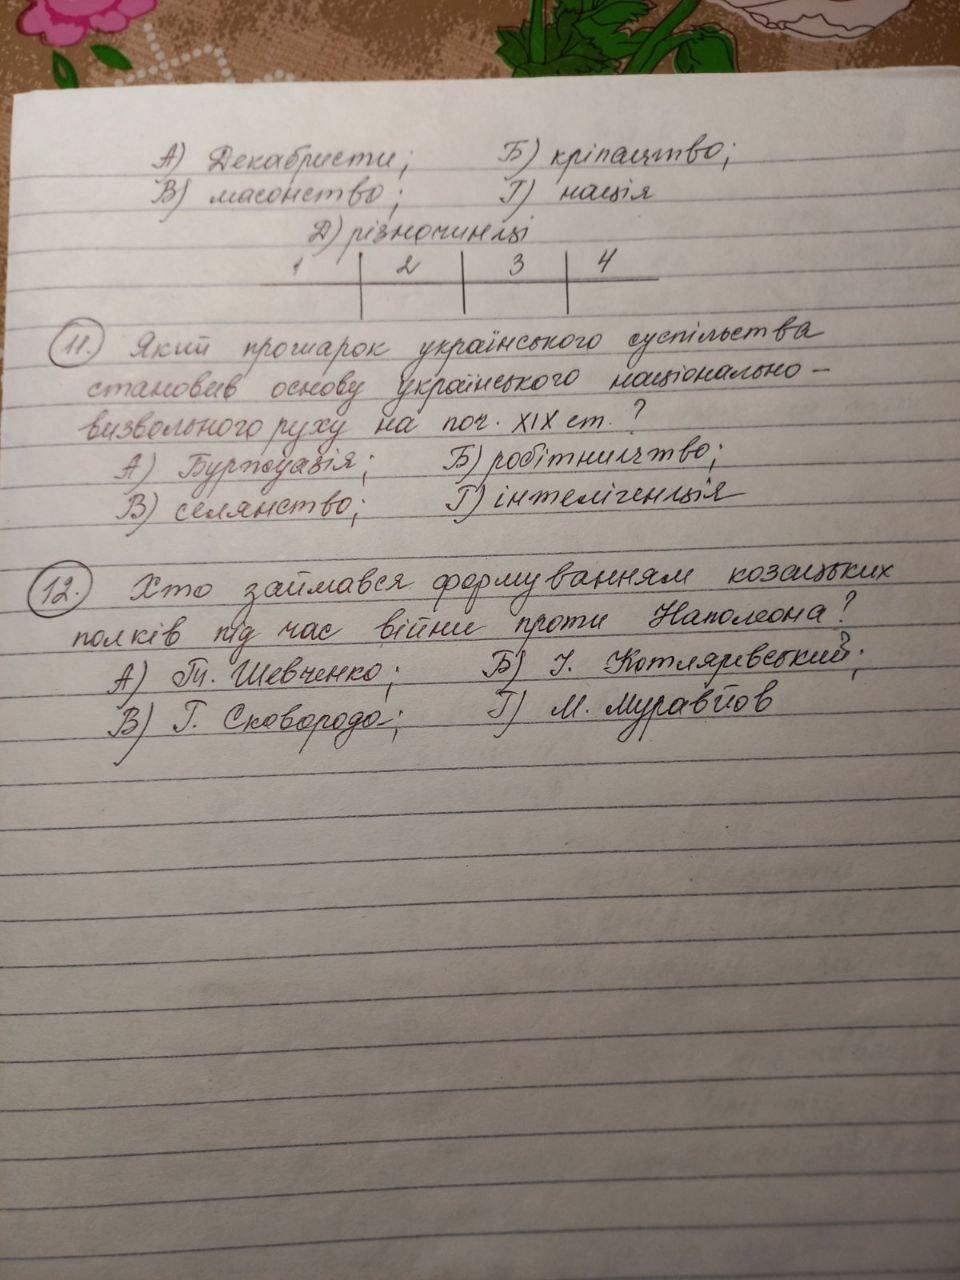 А) Декабристи; Б) кріпацтво;
В) масонство; Г) нація
Д) різночинці
1 2 3 4
11. Який прошарок українського суспільства
становив основу українського національно-
визвольного руху на поч. XIX ст.?
А) Буржуазія; Б) робітництво;
В) селянство; Г) інтелігенція
12. Хто займався формуванням козацьких
полків під час війни проти Наполеона?
А) Т. Шевченко; Б) І. Котляревський;
В) Г. Сковорода; Г) М. Муравйов